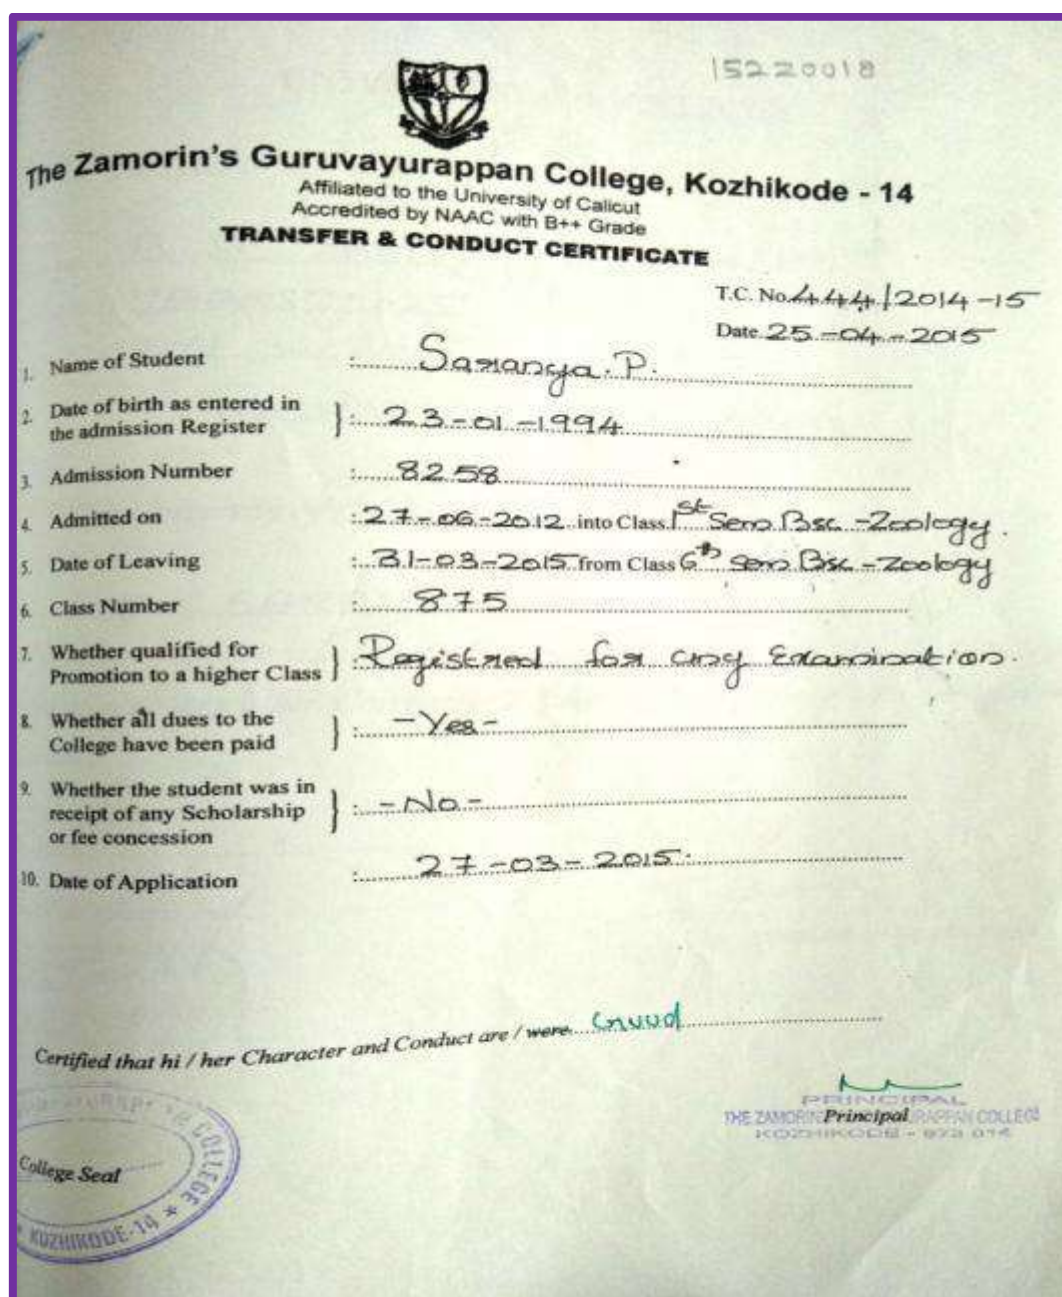 15220018
The Zamorin's Guruvayurappan College, Kozhikode - 14
Affiliated to the University of Calicut
Accredited by NAAC with B++ Grade
TRANSFER & CONDUCT CERTIFICATE
T.C. No. 444/2014-15
Date 25-04-2015
1. Name of Student : Saranya. P.
2. Date of birth as entered in
the admission Register } : 23-01-1994
3. Admission Number : 8258
4. Admitted on : 27-06-2012 into Class 1st Sem Bsc -Zoology.
5. Date of Leaving : 31-03-2015 from Class 6th Sem Bsc -Zoology
6. Class Number : 875
7. Whether qualified for
Promotion to a higher Class } : Registred for any Examination.
8. Whether all dues to the
College have been paid } : -Yes-
9. Whether the student was in
receipt of any Scholarship
or fee concession } : -No-
10. Date of Application : 27-03-2015.
Certified that hi / her Character and Conduct are / were Good
PRINCIPAL
Principal
THE ZAMORIN COLLEGE
KOZHIKODE - 673 014
College Seal
COLLEGE
* KOZHIKODE-14 *